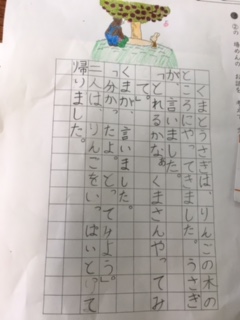 くまとうさぎは、りんごの木の
ところにやってきました。うさぎ
が、言いました。
「とれるかなぁ。くまさんやってみ
て。」
くまが、言いました。
「分かったよ。とってみよう。」
二人は、りんごをいっぱいとって
帰りました。